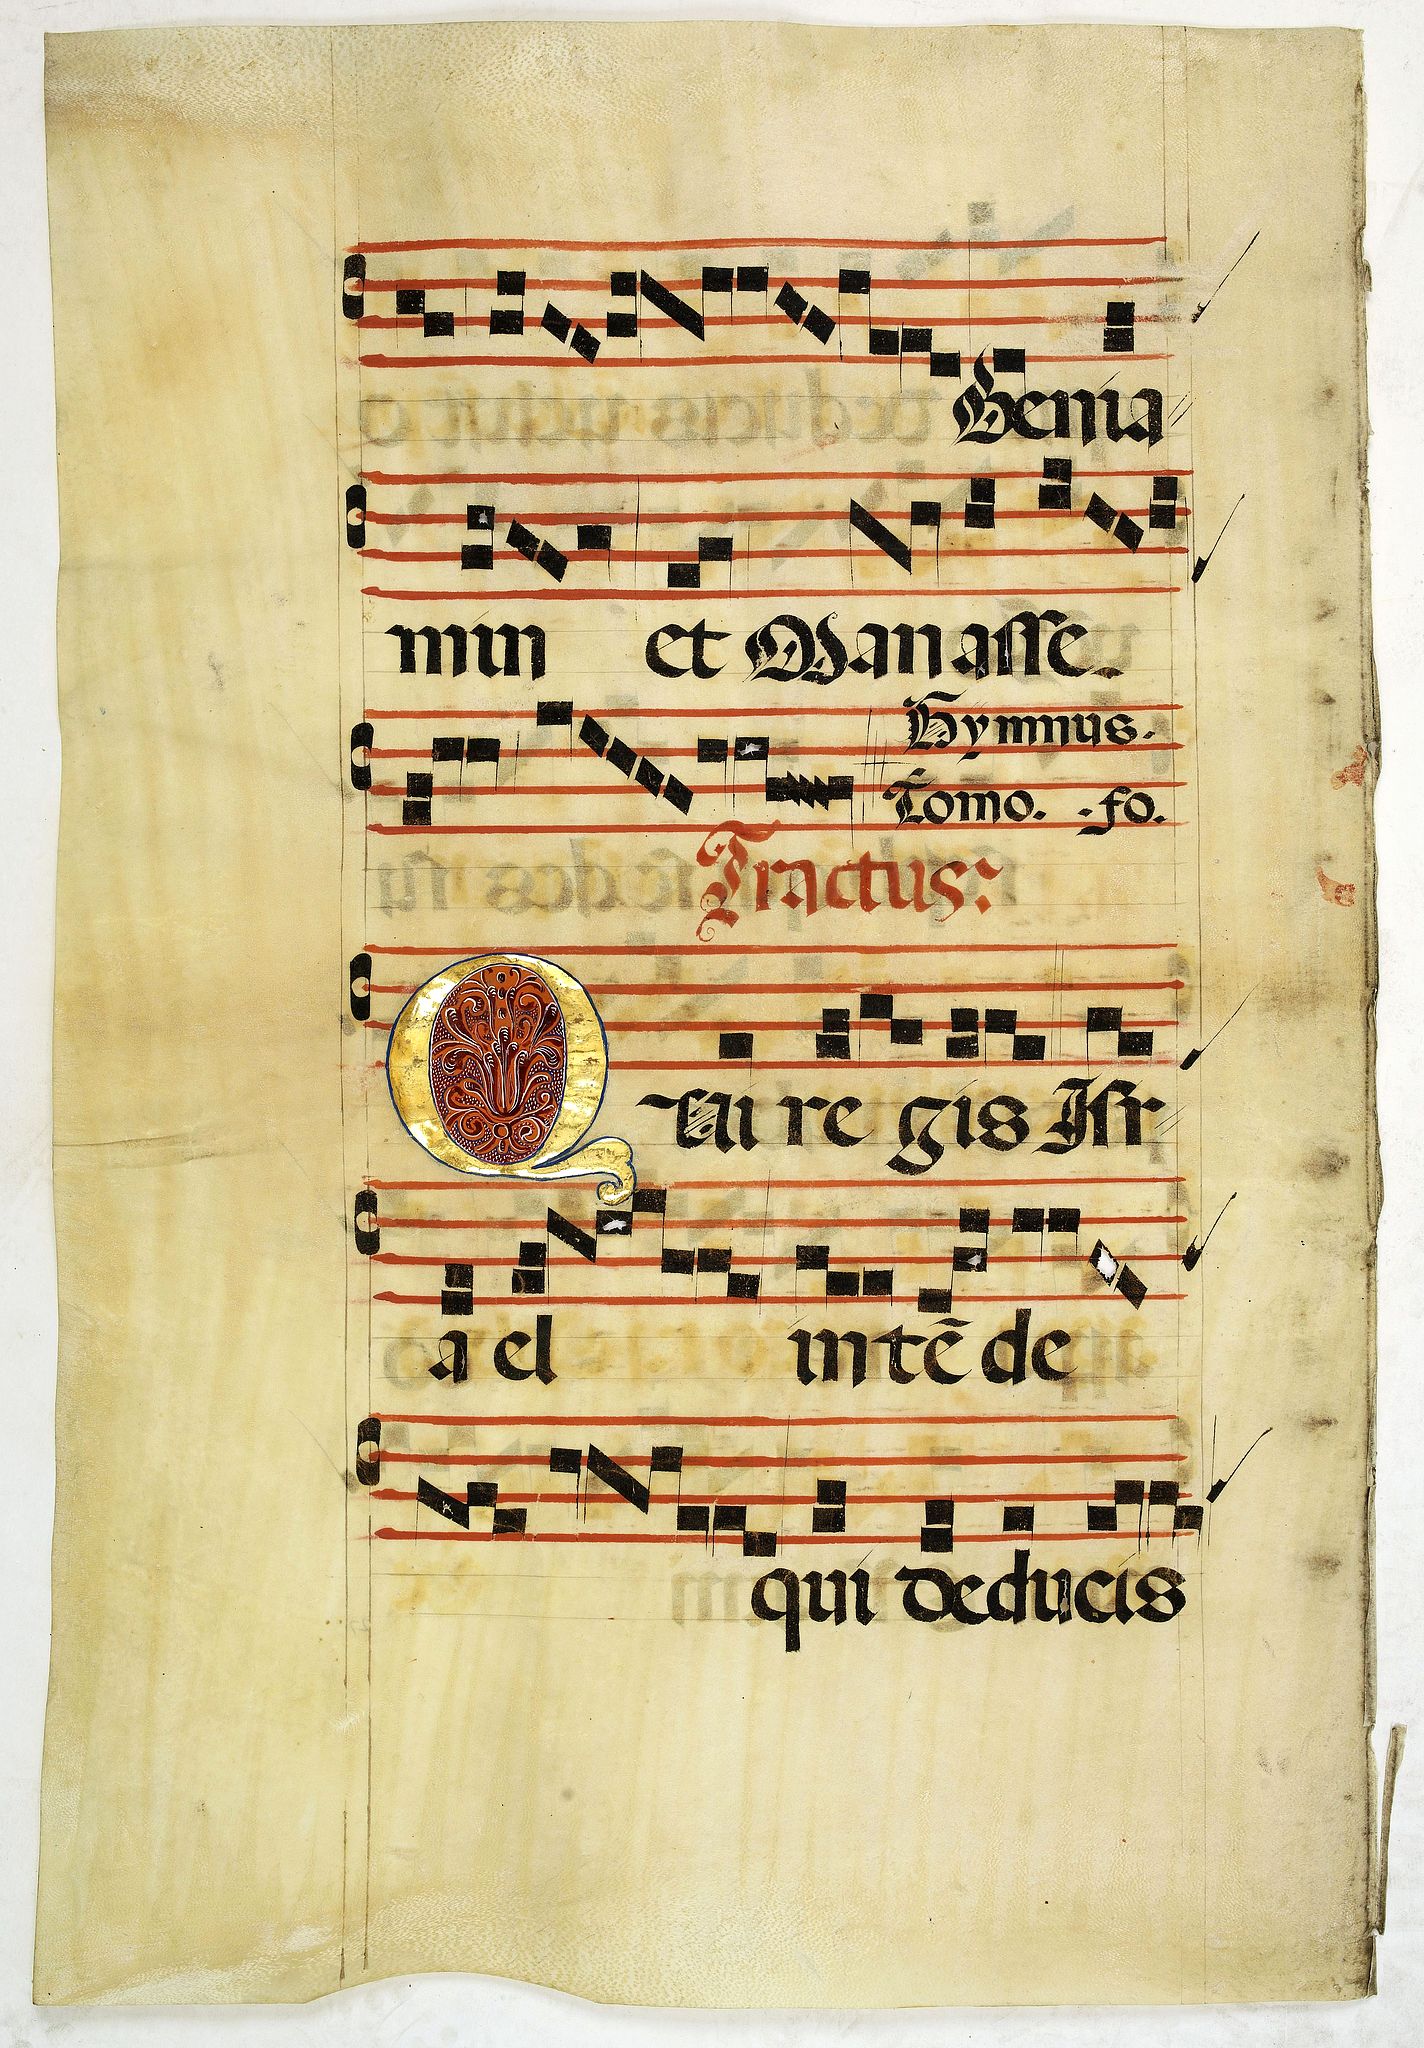 Benia
min et Manasse.
Hymnus.
Tomo. .fo.
Tractus:
Qui regis Isr
ael intẽde
qui deducis